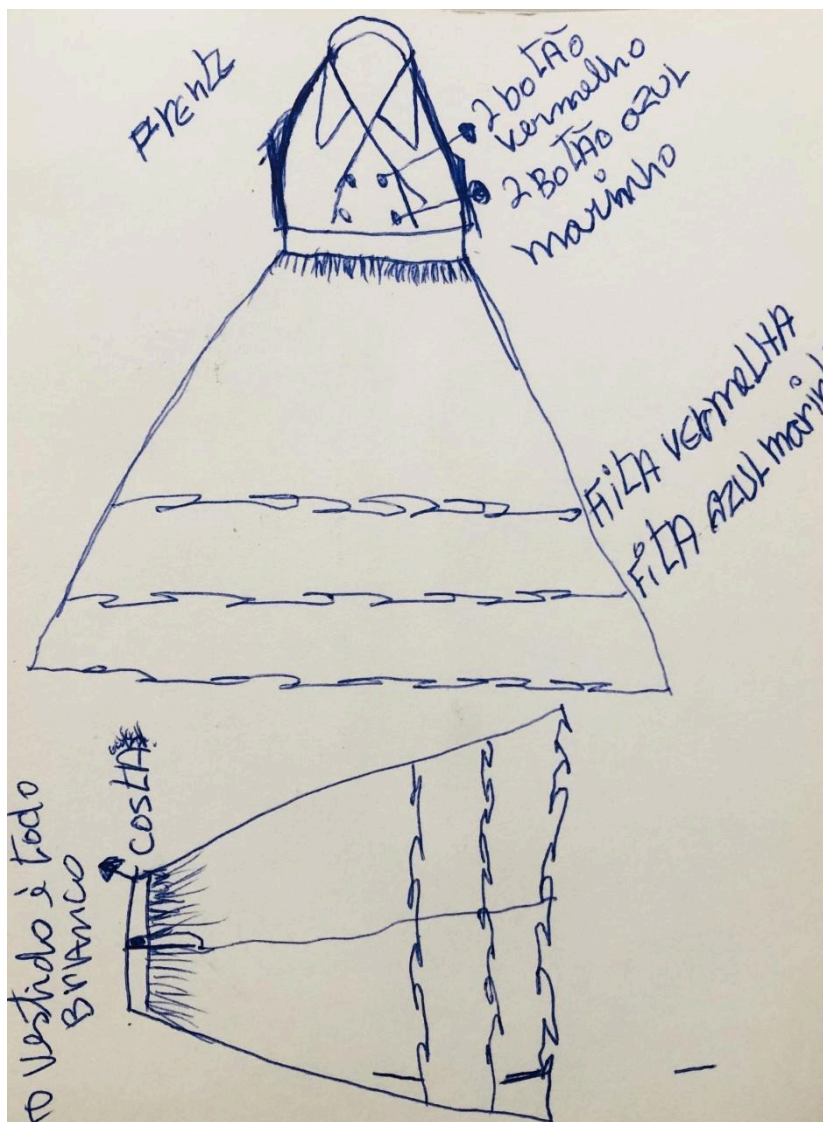 FrENtE
2 botÃO
vermelho
2 BOTÃO azul
marinho
FitA VErmelHA
FitA AZUL marinh
COStA
O Vestido é todo
BrANCO